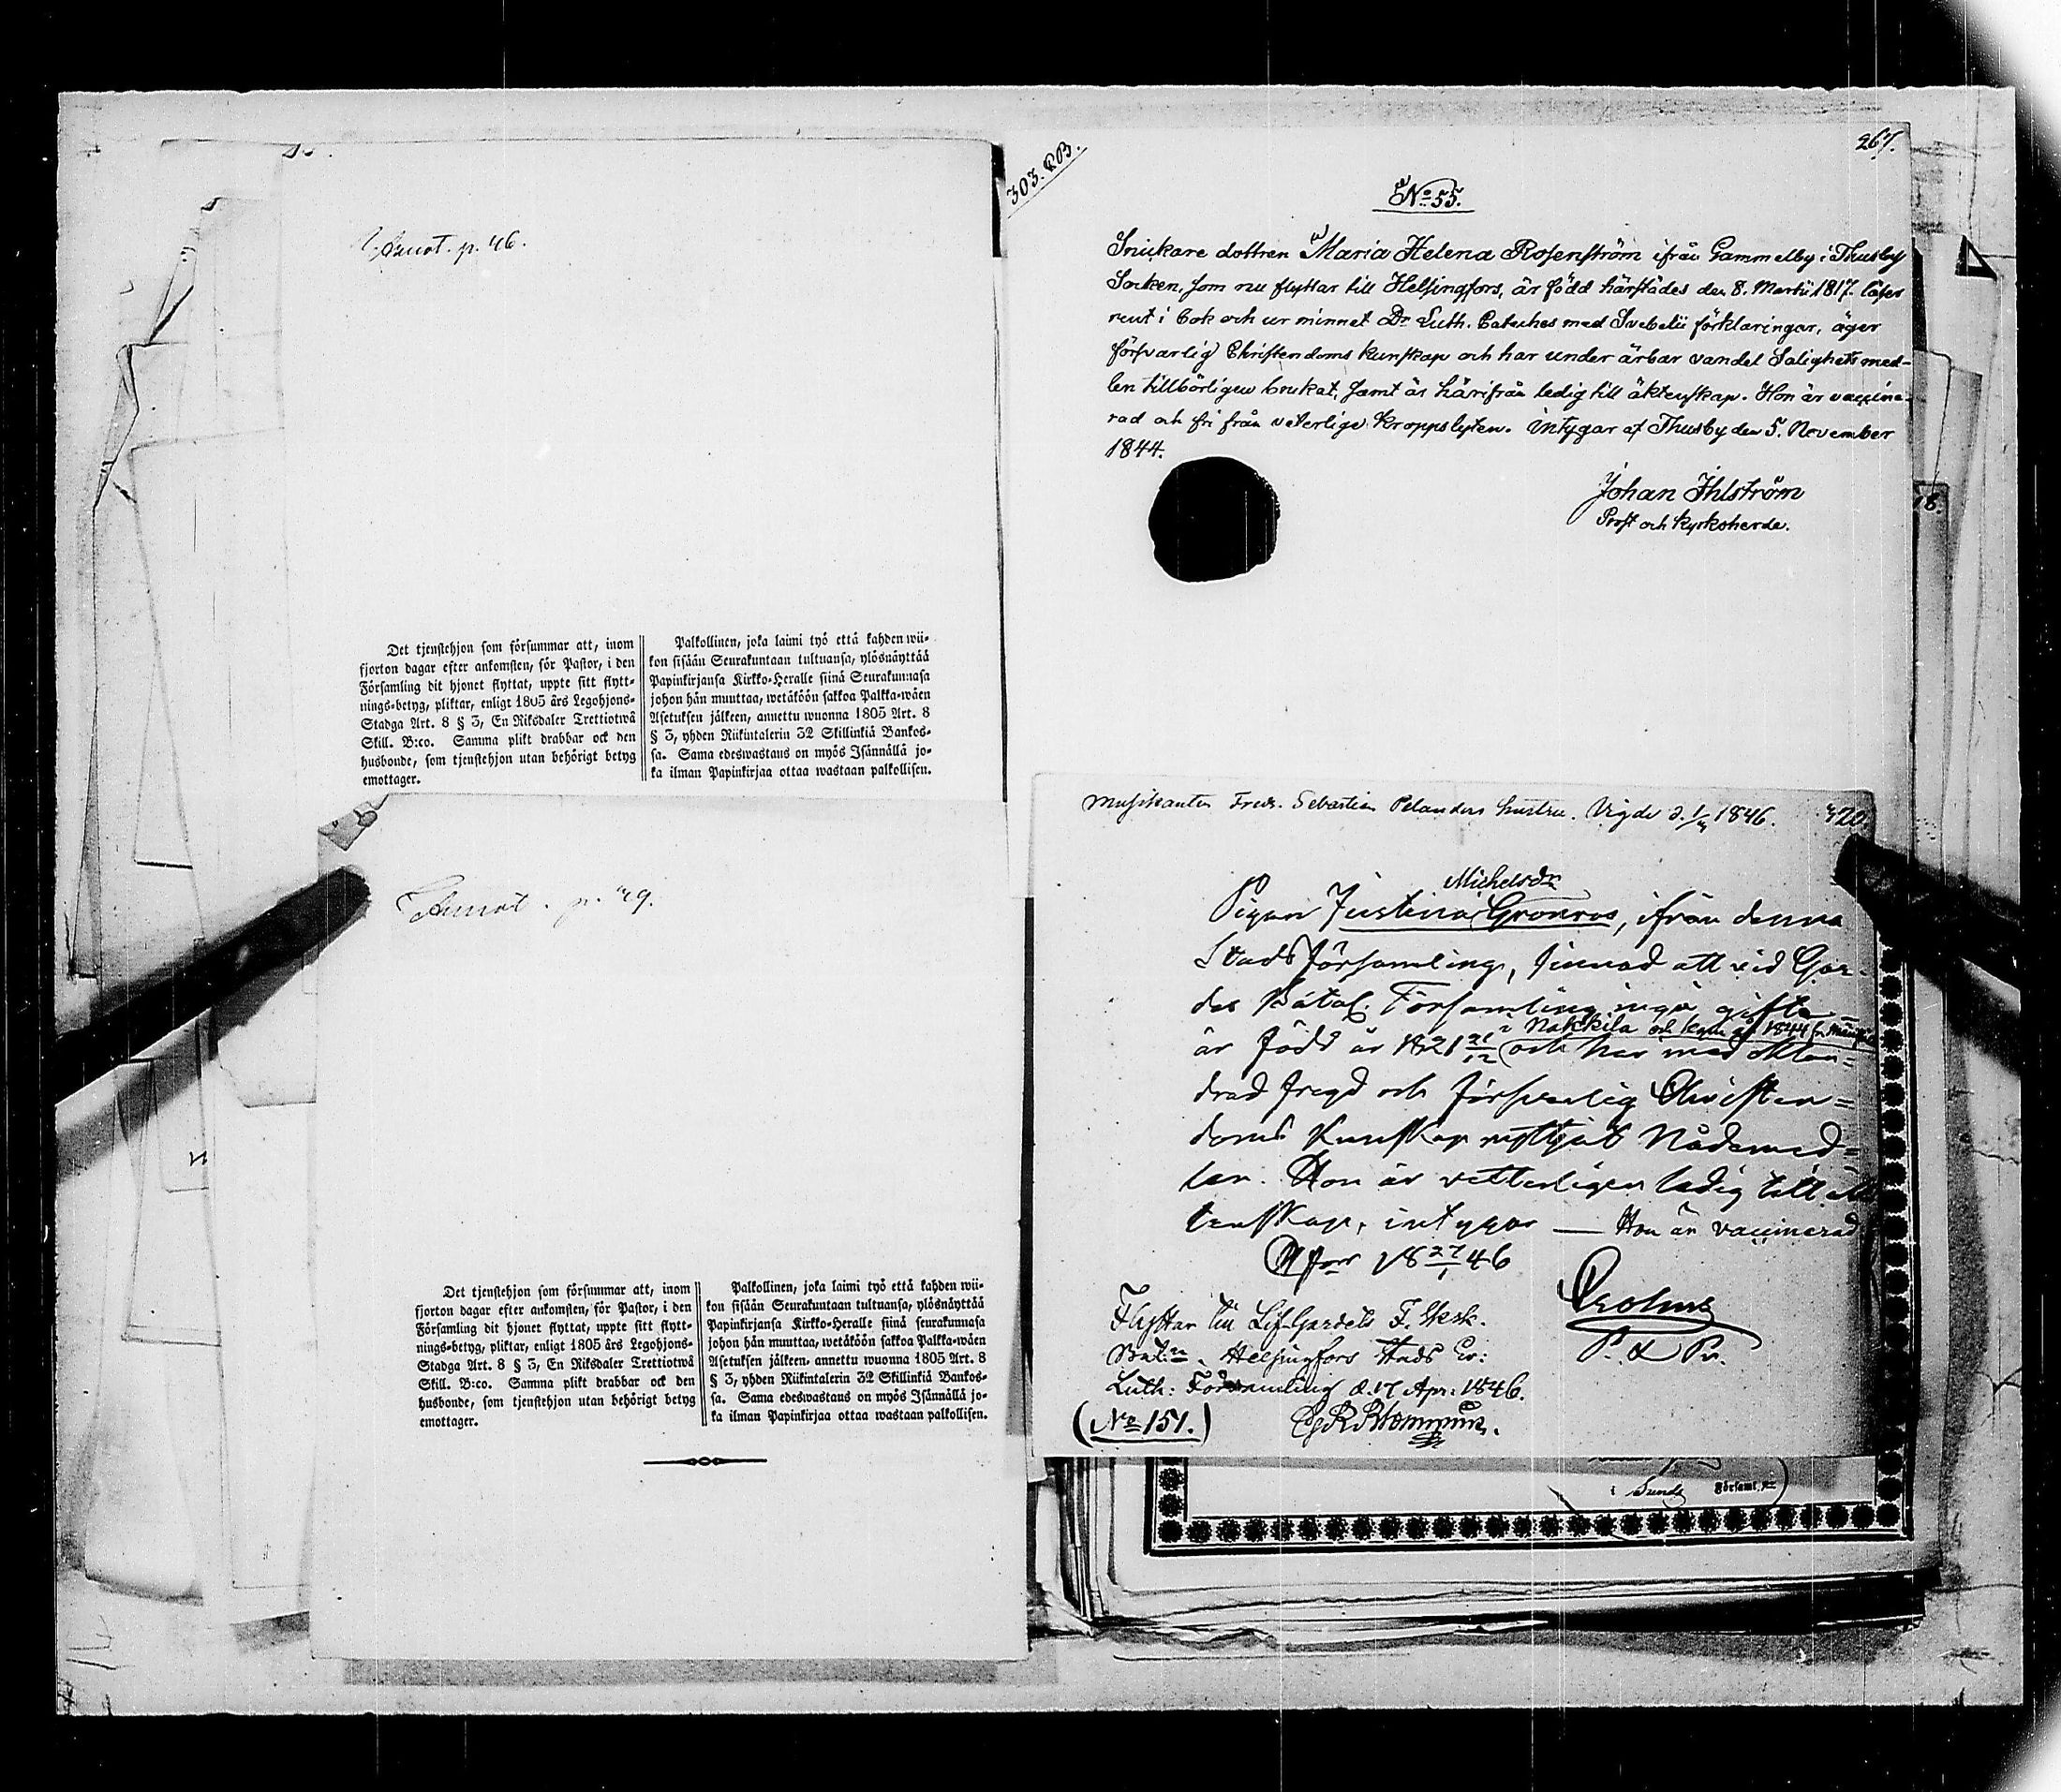 Annot. p. 46.
Det tjenstehjon som försummar att, inom
fjorton dagar efter ankomsten, för Pastor, i den
Församling dit hjonet flyttat, uppte sitt flytt-
nings-betyg, pliktar, enligt 1805 års Legohjons-
Stadga Art. 8 § 3, En Riksdaler Trettiotwå
Skill. B:co. Samma plikt drabbar ock den
husbonde, som tjenstehjon utan behörigt betyg
emottager.
Palkollinen, joka laimi lyö että kahden wii-
kon sisään Seurakuntaan tultuansa, ylösnäyttää
Papinkirjansa Kirkko-Heralle siinä Seurakunnasa
johon hän muuttaa, wetäköön sakkoa Palkka-wäen
Asetuksen jälkeen, annettu wuonna 1805 Art. 8
§ 3, yhden Riikintalerin 32 Skillinkiä Bankos-
sa. Sama edeswastaus on myös Isännällä jo-
ka ilman Papinkirjaa ottaa wastaan palkollisen.
Annot. p. 49.
Det tjenstehjon som försummar att, inom
fjorton dagar efter ankomsten, för Pastor, i den
Församling dit hjonet flyttat, uppte sitt flytt-
nings-betyg, pliktar, enligt 1805 års Legohjons-
Stadga Art. 8 § 3, En Riksdaler Trettiotwå
Skill. B:co. Samma plikt drabbar ock den
husbonde, som tjenstehjon utan behörigt betyg
emottager.
Palkollinen, joka laimi lyö että kahden wii-
kon sisään Seurakuntaan tultuansa, ylösnäyttää
Papinkirjansa Kirkko-Heralle siinä seurakunnasa
johon hän muuttaa, wetäköön sakkoa Palkka-wäen
Asetuksen jälkeen, annettu wuonna 1805 Art. 8
§ 3, yhden Riikintalerin 32 Skillinkiä Bankos-
sa. Sama edeswastaus on myös Isännällä jo-
ka ilman Papinkirjaa ottaa wastaan palkollisen.
303.
267.
No 55.
Snickare dottren Maria Helena Rosenström ifrån Gammelby i Thusby
Socken, som nu flyttar till Helsingfors, är född härstädes den 8. Martii 1817. läser
rent i bok och ur minnet Dr Luth. Cateches med Svebelii förklaringar, äger
försvarlig Christendoms kunskap och har under ärbar vandel Salighets med-
len tillbörligen brukat, samt är härifrån ledig till äktenskap. Hon är vaccine-
rad och fri från veterliga kroppslyten. intygar af Thusby den 5. November
1844.
Johan Ihlström
Prost och kyrkoherde.
18.
Musikanten Fredr. Sebastian Pelanders hustru. Vigde d. 1846.
420
Michelsdr
Pigan Justina Grönroos, ifrån denna
Stads församling, sinnad att vid Gar-
des Batal. Församling ingå gifte -
i Nakkila och kom år 1844 fr.
är född år 1821 21/12 och har med oklan-
drad fregd och försvarlig Christen=
doms kunskap nyttjat Nådemed-
len. Hon är vetterligen ledig till äk
tenskap, intygar — Hon är vaccinerad
18 27/1 46
P. & Pr.
Flyttar till Lif-Gardets F. Sksk.
Bat:n i Helsingfors Stads Ev:
Luth: Församling d. 17 Apr: 1846.
(No 151.)
i Sund Församl: